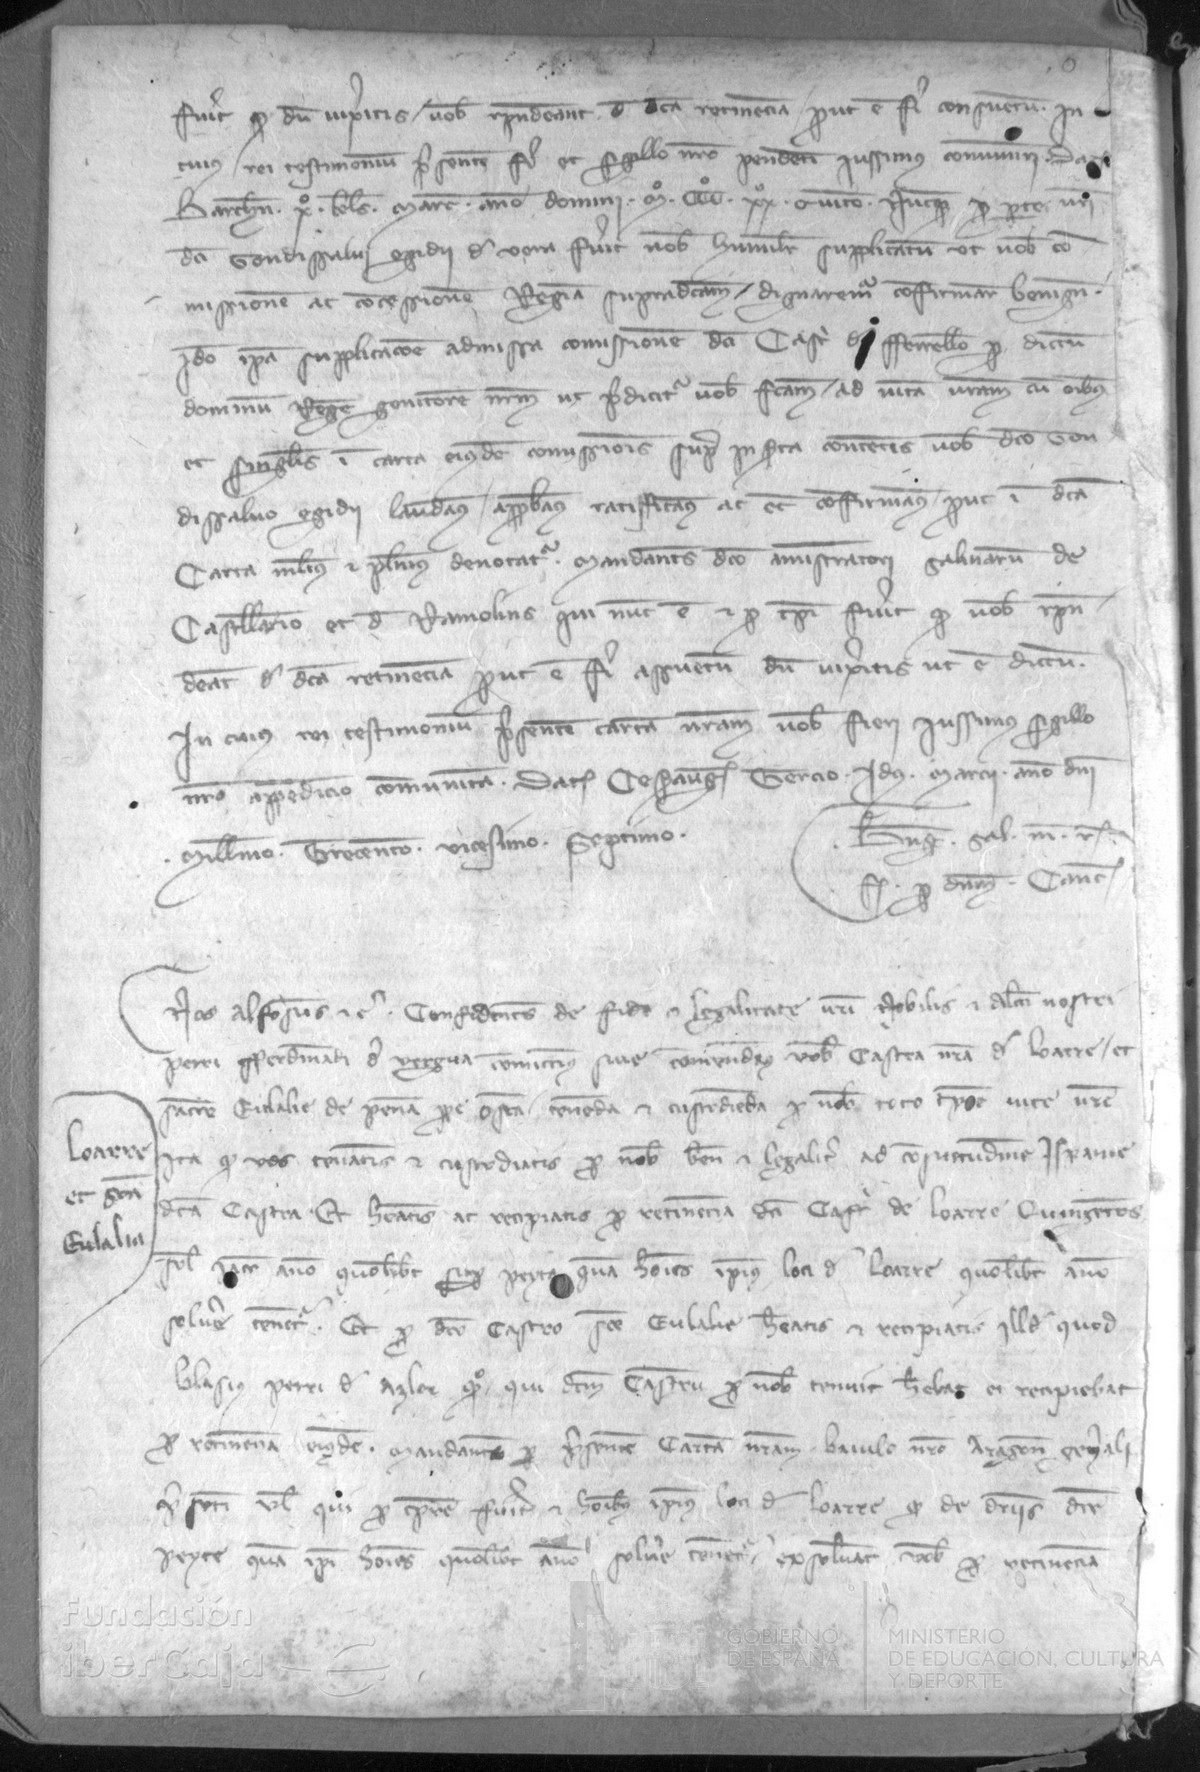 fuit q dū vixitis / vob rpndeant d dca retinecia put e fi consuetu. In
cuius rei testimoniu psente fi et sigillo nro pendeti iussimus comuniri. Dat
Barchn. xº. kls. marc. ano domini. Mº. CCCº. xxº. Quito. Nucq p pte uri
dci Gondissalui egidii d vera fuit nob humilit supplicatu ut uob co
missione ac cocessione Regia supradcam / dignarem cofirmar benign.
Ido ipa supplicacoe admissa comissione dci Cast d fferrello p dictu
dominu Rege genitore nrm ut pdicit uob fcam / ad uita uram cu oibus
et singlis i carta eiusde comissiois sup inserta contetis uob dco Gon
dissaluo egidii laudam / approbam ratifficam ac et cofirmam / put i dca
Carta melius & plenius denotat. Mandantes dco amistratori salinaru de
Castellario et d Ramolins qui nuc e & p tpe fuit q uob rpn
deat d dca retinecia put e fi assuetu du vixitis ut e dictu.
In cuius rei testimoniu psente carta nram uob fieri iussimus sigillo
nro appedicio comunita. Dat Cesaraug Tercio. Idus. Marcii. ano dni
Millimo. Trecento. vicesimo. Septimo.
Bng. sal. m. r.
fi. p dnm. Canc
Nos Alfosus &c. Confidentes de fide & legalitate uri Nobilis & dilci nostri
petri fferdinandi d vergua comittim siue comendam vob Castra nra d Loarre / et
sancte Eulalie de pena ppe osca teneda & custodieda p nob toto tpoe uite ure
Ita q vos teneatis & custodiatis p nob ben & legalit ad cosuetudine Ispanie
dca Castra. Et heatis ac recipiatis p retinecia dci Cast de Loarre Quingetos
sol iacc ano quolibet sup peyta qua hoies ipius loci d Loarre quolibet ano
soluere tenet. Et p dco Castro sce Eulalie heatis & recipiatis illd quod
blasius petri d azlor qº qui dcm Castru p nob tenuit hebat et recipiebat
p retinencia eiusde. Mandantes p psente Carta nram baiulo nro Aragon genali
psenti vl qui p tpre fuit & hoibus ipius loci d Loarre q de drijs dce
peyte qua ipi hoies quolibet ano soluere tenet / exsoluat vob p retinecia
Loarre
et sca
Eulalia
Fundación
iberCaja
GOBIERNO
DE ESPAÑA
MINISTERIO
DE EDUCACIÓN, CULTURA
Y DEPORTE